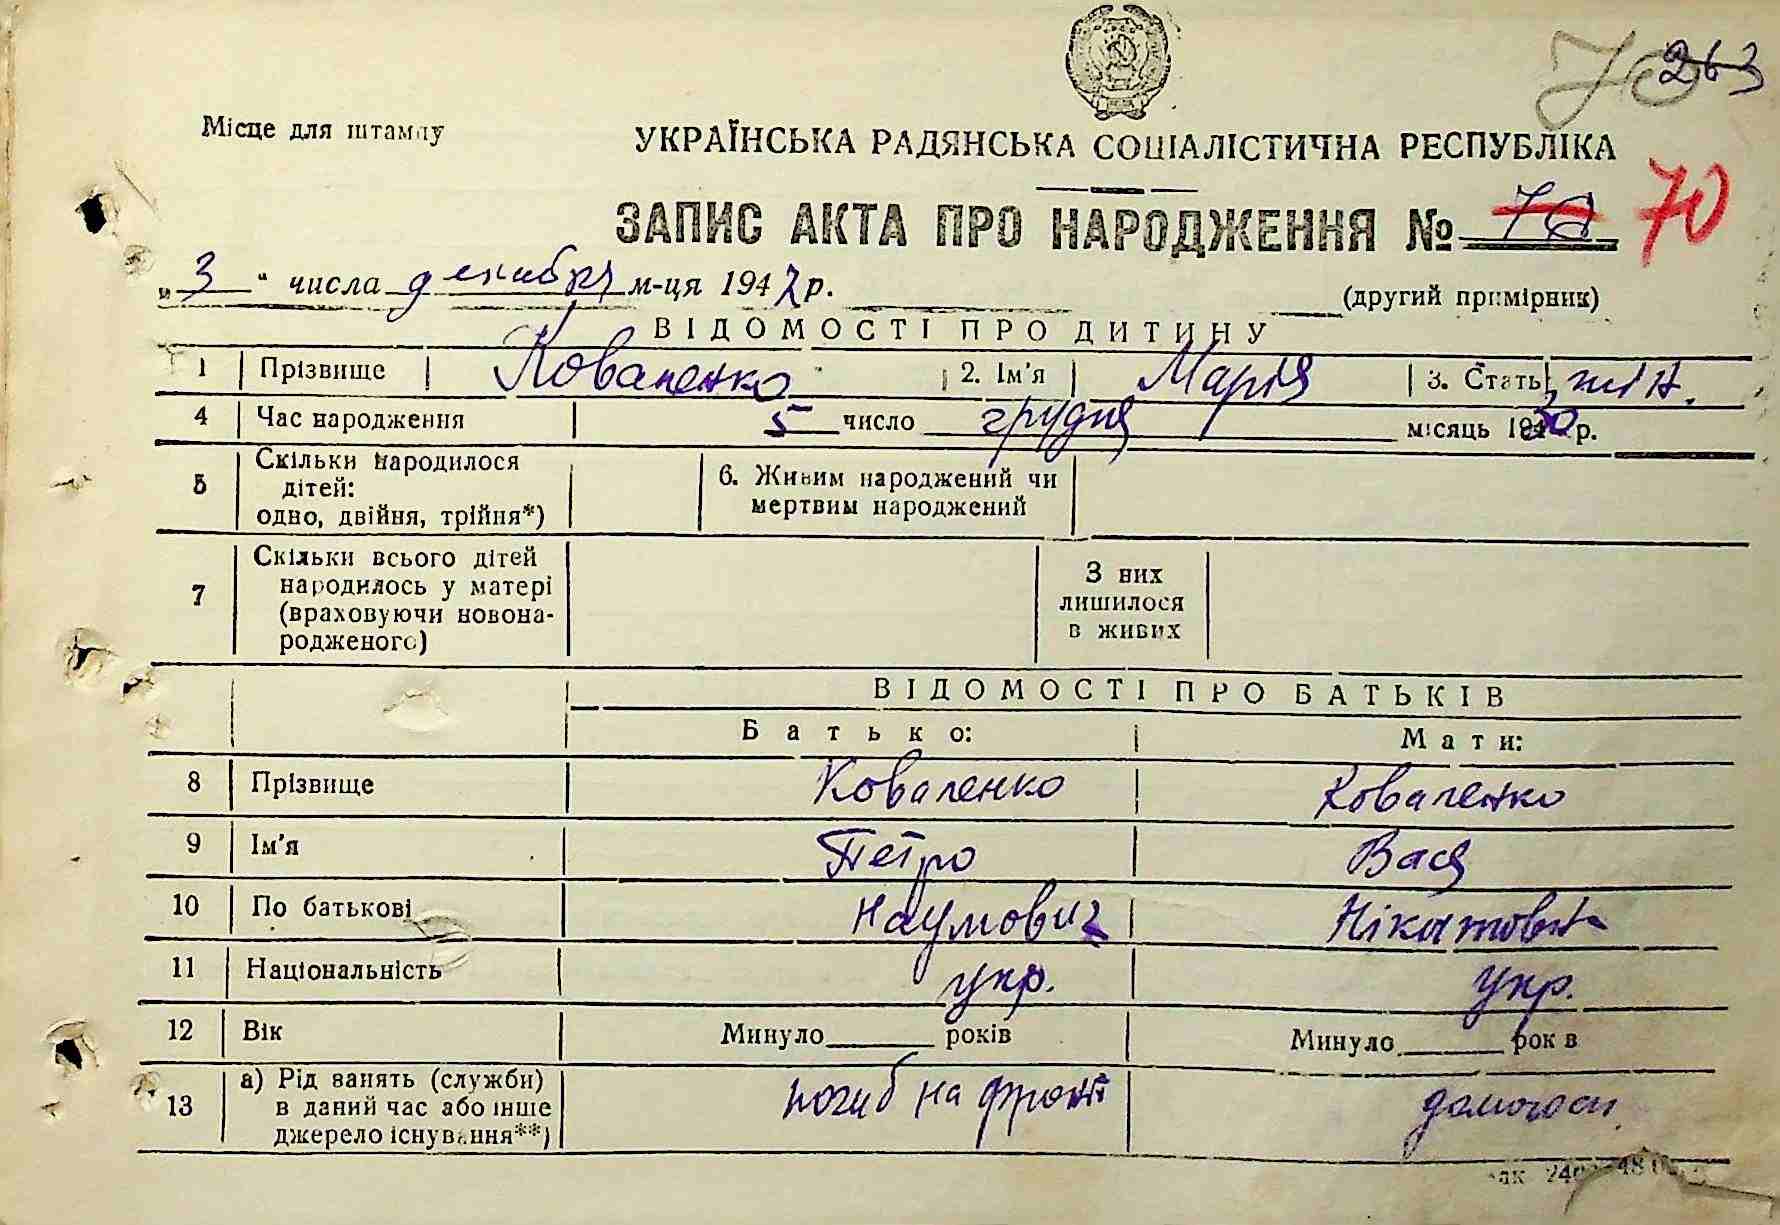 70 263
Місце для штампу
УКРАЇНСЬКА РАДЯНСЬКА СОЦІАЛІСТИЧНА РЕСПУБЛІКА
ЗАПИС АКТА ПРО НАРОДЖЕННЯ № 70 70
„ 3 “ числа декабря м-ця 1947 р. (другий примірник)
ВІДОМОСТІ ПРО ДИТИНУ
1 Прізвище Коваленко 2. Ім'я Марія 3. Стать жін.
4 Час народження 5 число грудня місяць 1930 р.
5 Скільки народилося дітей: одно, двійня, трійня*) 6. Живим народжений чи мертвим народжений
7 Скільки всього дітей народилось у матері (враховуючи новонародженого) З них лишилося в живих
ВІДОМОСТІ ПРО БАТЬКІВ
Батько: Мати:
8 Прізвище Коваленко Коваленко
9 Ім'я Петро Вася
10 По батькові Наумович
11 Національність укр. укр.
12 Вік Минуло років Минуло рок в
13 а) Рід занять (служби) в даний час або інше джерело існування**) погиб на фронті домогосп.